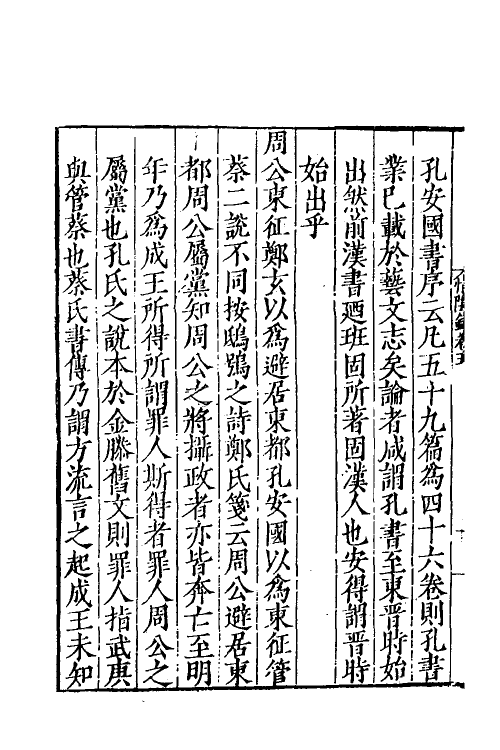 孔安國書序云凡五十九篇為四十六卷則孔書
業已載於藝文志矣論者咸謂孔書至東晉時始
出然前漢書廼班固所著固漢人也安得謂晉時
始出乎
周公東征鄭玄以為避居東都孔安國以為東征管
蔡二說不同按鴟鴞之詩鄭氏箋云周公避居東
都周公屬黨知周公之將攝政者亦皆奔亡至明
年乃為成王所得所謂罪人斯得者罪人周公之
屬黨也孔氏之說本於金滕舊文則罪人指武庚
與管蔡也蔡氏書傳乃謂方流言之起成王未知